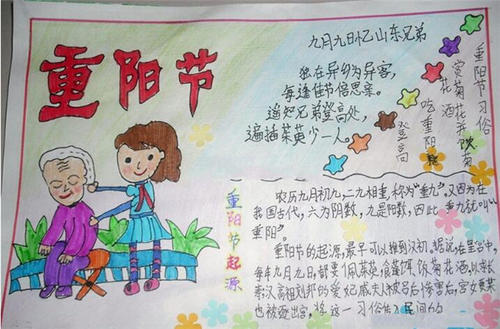 重阳节
九月九日忆山东兄弟
独在异乡为异客,
每逢佳节倍思亲。
遥知兄弟登高处,
遍插茱萸少一人。
重阳节习俗
赏菊花并饮菊
花酒
吃重阳糕
登高
重阳节起源
农历九月初九,二九相重,称为"重九"。又因为在
我国古代,六为阴数,九是阳数,因此重九就叫"
重阳"。
重阳节的起源,最早可以推到汉初,据说,在皇宫中,
每年九月九日都要佩茱萸,食蓬饵,饮菊花酒,以求长
汉高祖刘邦的爱妃戚夫人被吕后惨害后,宫女贾某
也被逐出宫,将这一习俗传入民间